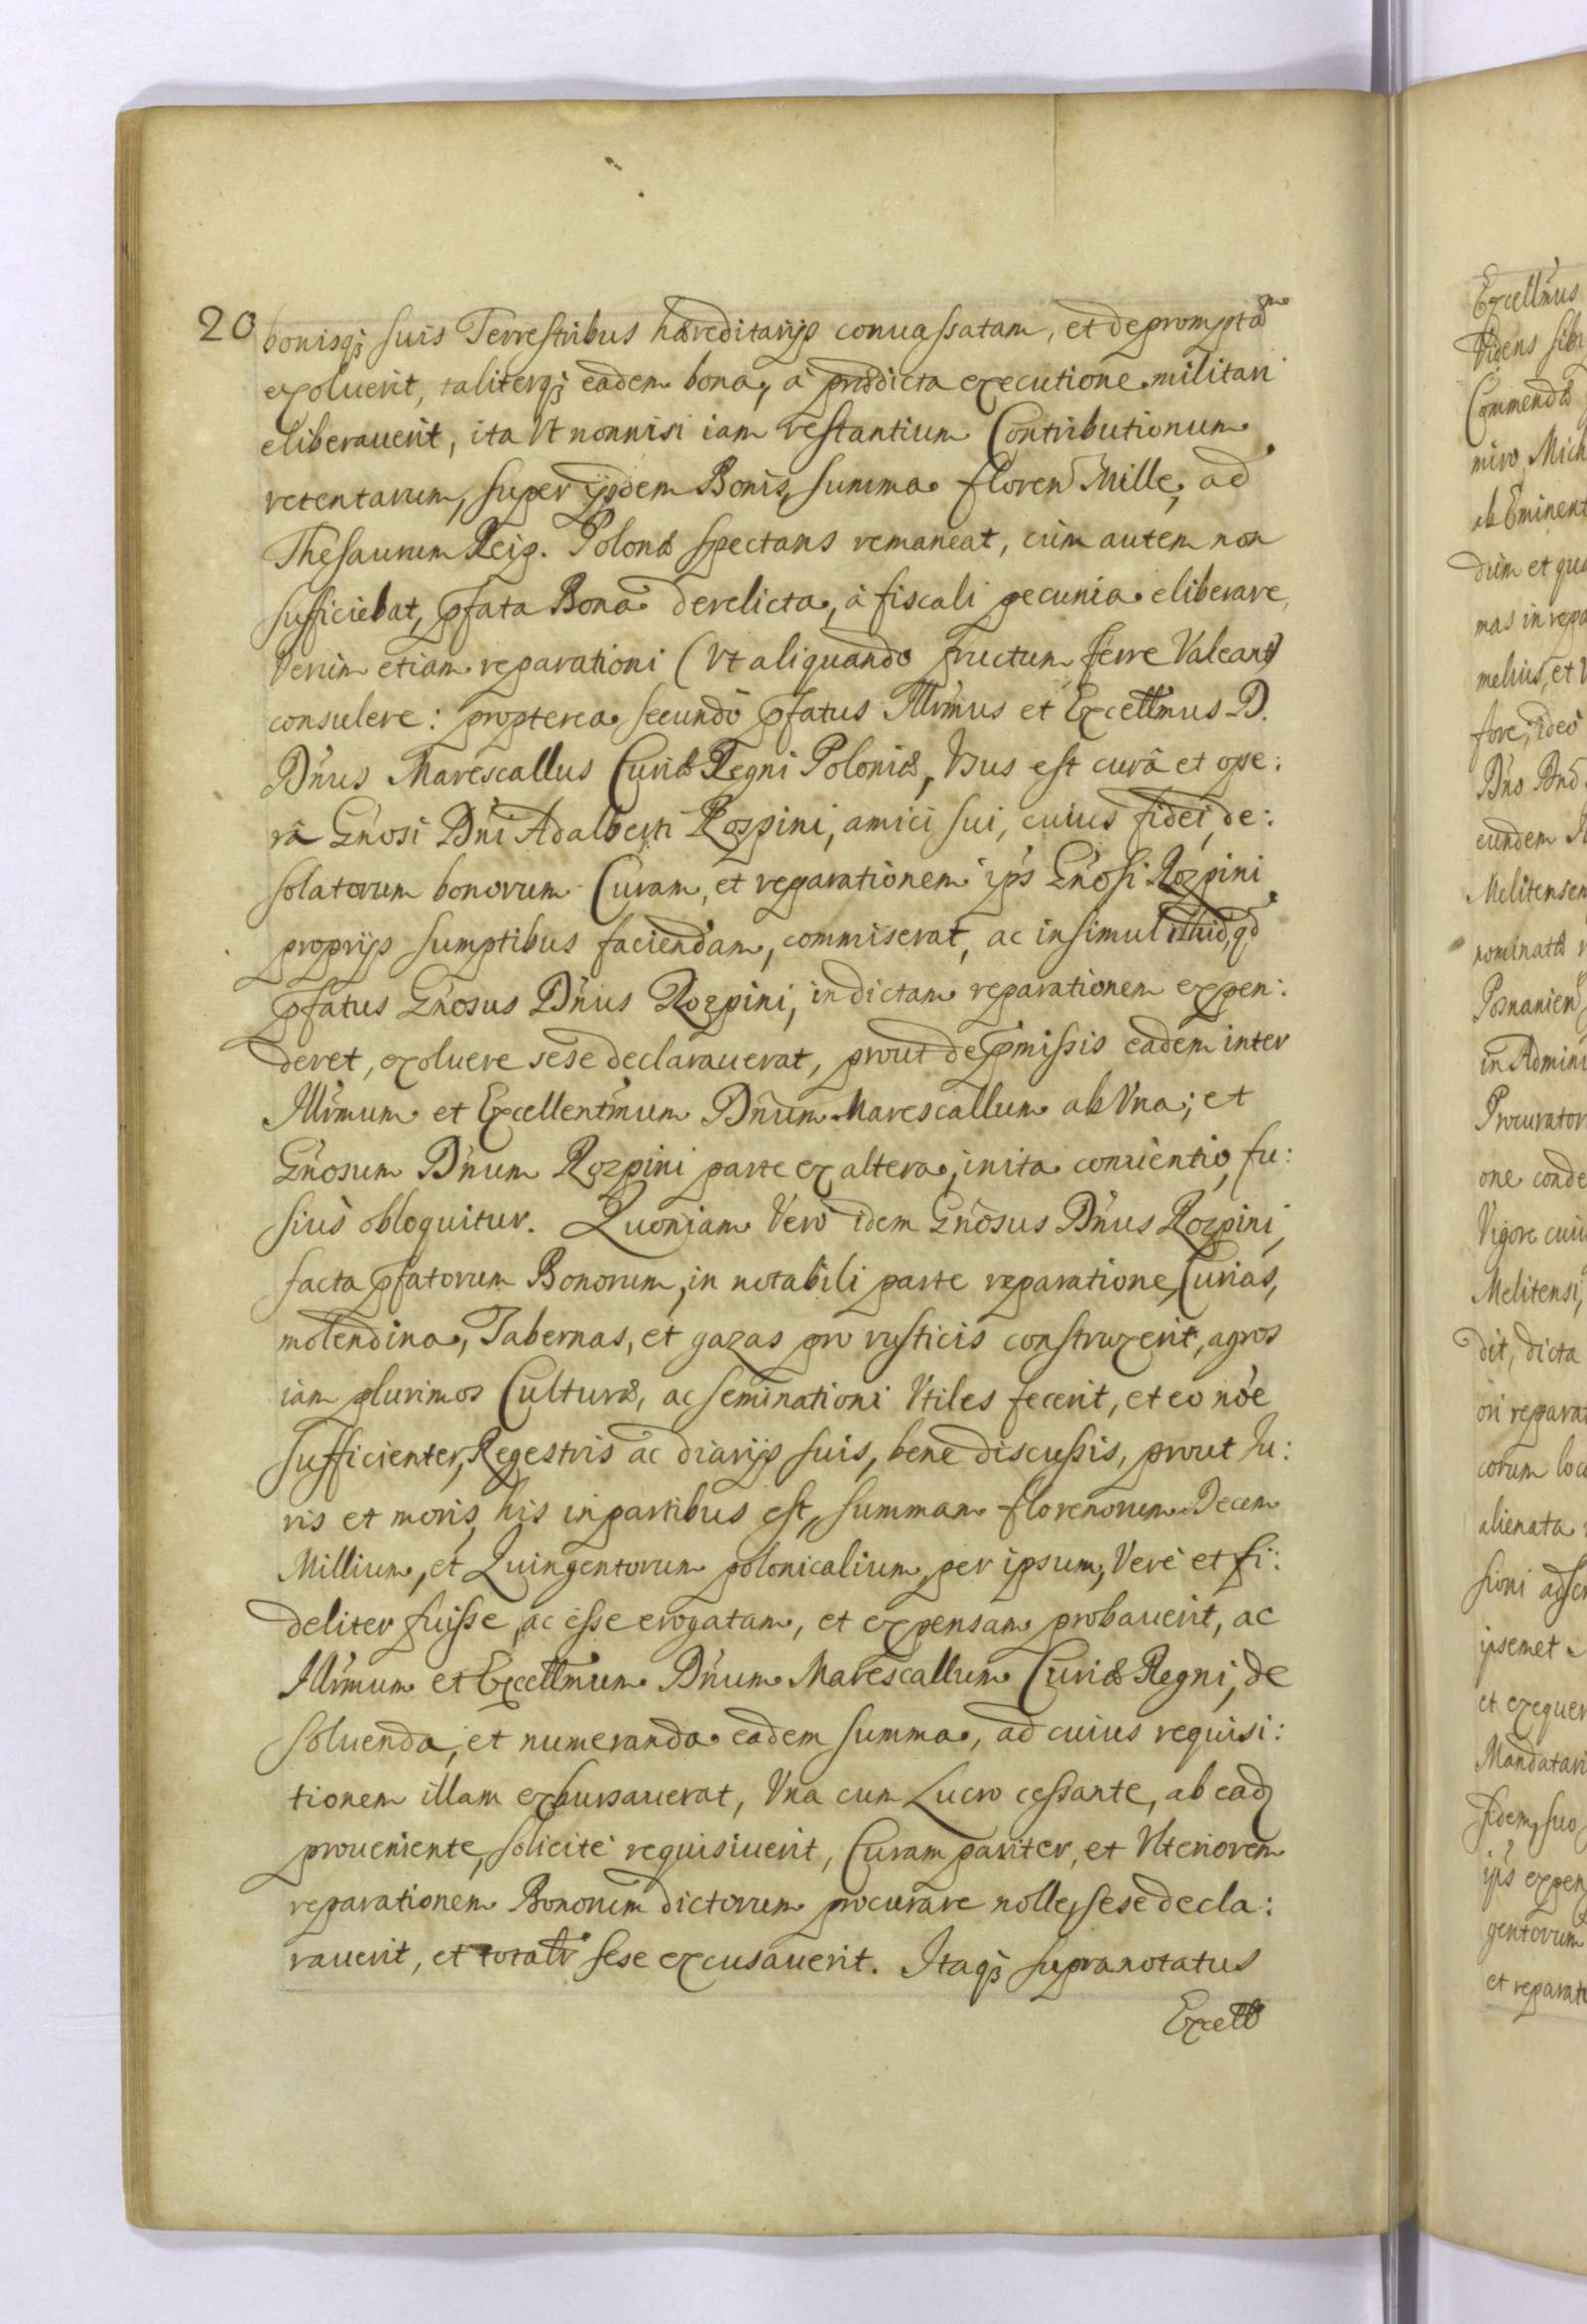 20
bonisq; suis Terrestribus hæreditarijs conuassatam, et depromptam
exoluerit, taliterq; eadem bona, à prædicta executione militari
eliberauerit, ita Vt nonnisi iam restantium Contributionum
retentarum, super ijsdem Bonis, summa floren Mille, ad
Thesaurum Reip. Polonæ spectans remaneat, cùm autem non
sufficiebat, pfata Bona derelicta, à fiscali pecunia eliberare,
Verùm etiam reparationi (Vt aliquando fructum ferre Valeant)
consulere: propterea secundò pfatus Illr̃mus et Excellm̃us D.
Dn̄us Marescallus Curiæ Regni Poloniæ, Vsus est curâ et ope:
râ Gn̄osi Dn̄i Adalberti Rozpini, amici sui, cuius fidei, de:
solatorum bonorum Curam, et reparationem ips̄ Gn̄osi Rozpini
proprijs sumptibus faciendam, commiserat, ac insimul illud, qd
pfatus Gn̄osus Dn̄us Rozpini, in dictam reparationem expen:
deret, exoluere sese declarauerat, prout de pmissis eadem inter
Illr̃mum et Excellentm̃um Dn̄um Marescallum ab Vna; et
Gn̄osum Dn̄um Rozpini parte ex altera, inita conuentio, fu:
siùs obloquitur. Quoniam Verò idem Gn̄osus Dn̄us Rozpini,
facta pfatorum Bonorum, in notabili parte reparatione, Curias,
molendina, Tabernas, et gazas pro rusticis construxerit, agros
iam plurimos Culturæ, ac seminationi Vtiles fecerit, et eo nōe
sufficienter, Regestris ac diarijs suis, bene discussis, prout Iu:
ris et moris his in partibus est, summam florenorum Decem
Millium, et Quingentorum polonicalium, per ipsum, Verè et fi:
deliter fuisse, ac esse erogatam, et expensam probauerit, ac
Illr̃mum et Excellm̃um Dn̄um Marescallum Curiæ Regni, de
soluenda, et numeranda eadem summa, ad cuius requisi:
tionem illam exbursauerat, Vna cum Lucro cessante, ab ead
proueniente, solicitè requisiuerit, Curam pariter, et Vlteriorem
reparationem Bonorum dictorum procurare nolle, sese decla:
rauerit, et totalr̄ sese excusauerit. Itaq; supranotatus
Excell